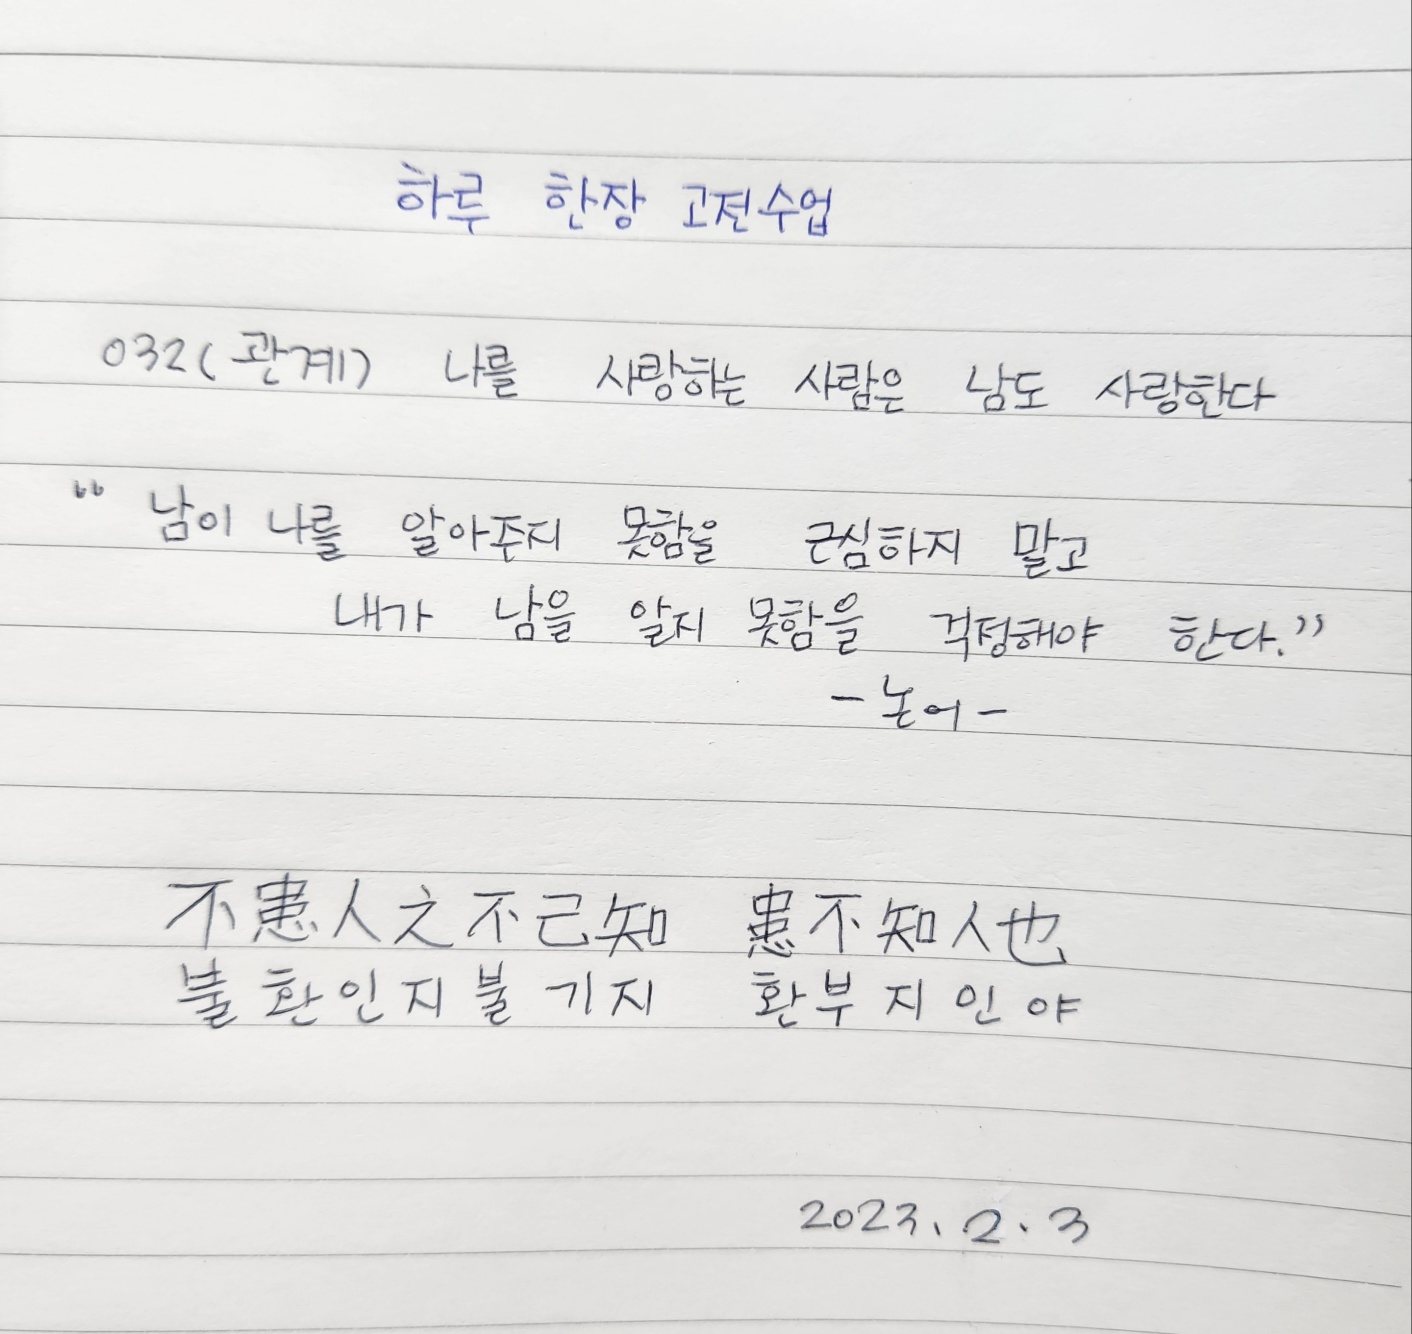 하루 한장 고전수업
032(관계) 나를 사랑하는 사람은 남도 사랑한다
“ 남이 나를 알아주지 못함을 근심하지 말고
내가 남을 알지 못함을 걱정해야 한다.”
- 논어 -
不患人之不己知 患不知人也
불환인지불기지 환부지인야
2023. 2. 3